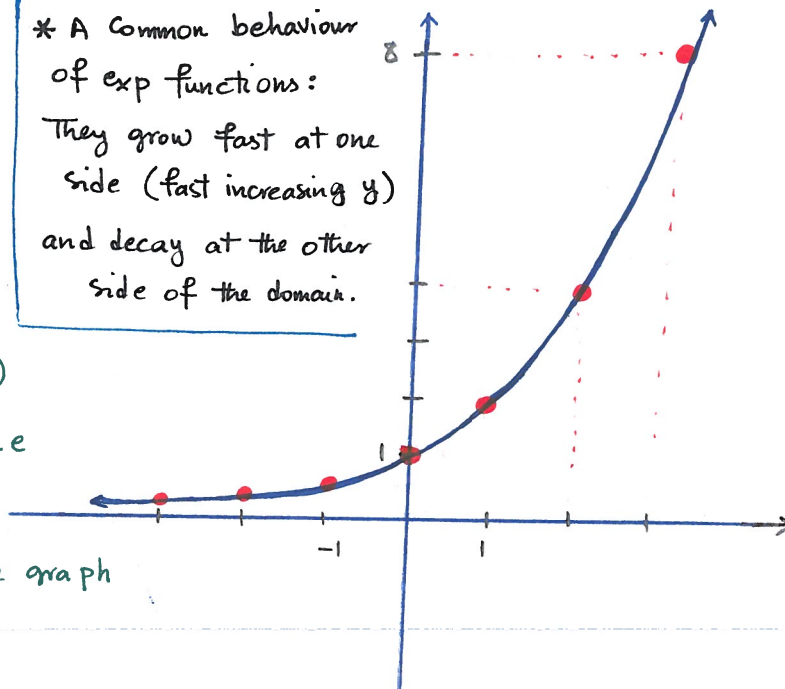 * A Common behaviour
of exp functions:
They grow fast at one
side (fast increasing y)
and decay at the other
side of the domain.
8
)
e
1
-1
1
graph